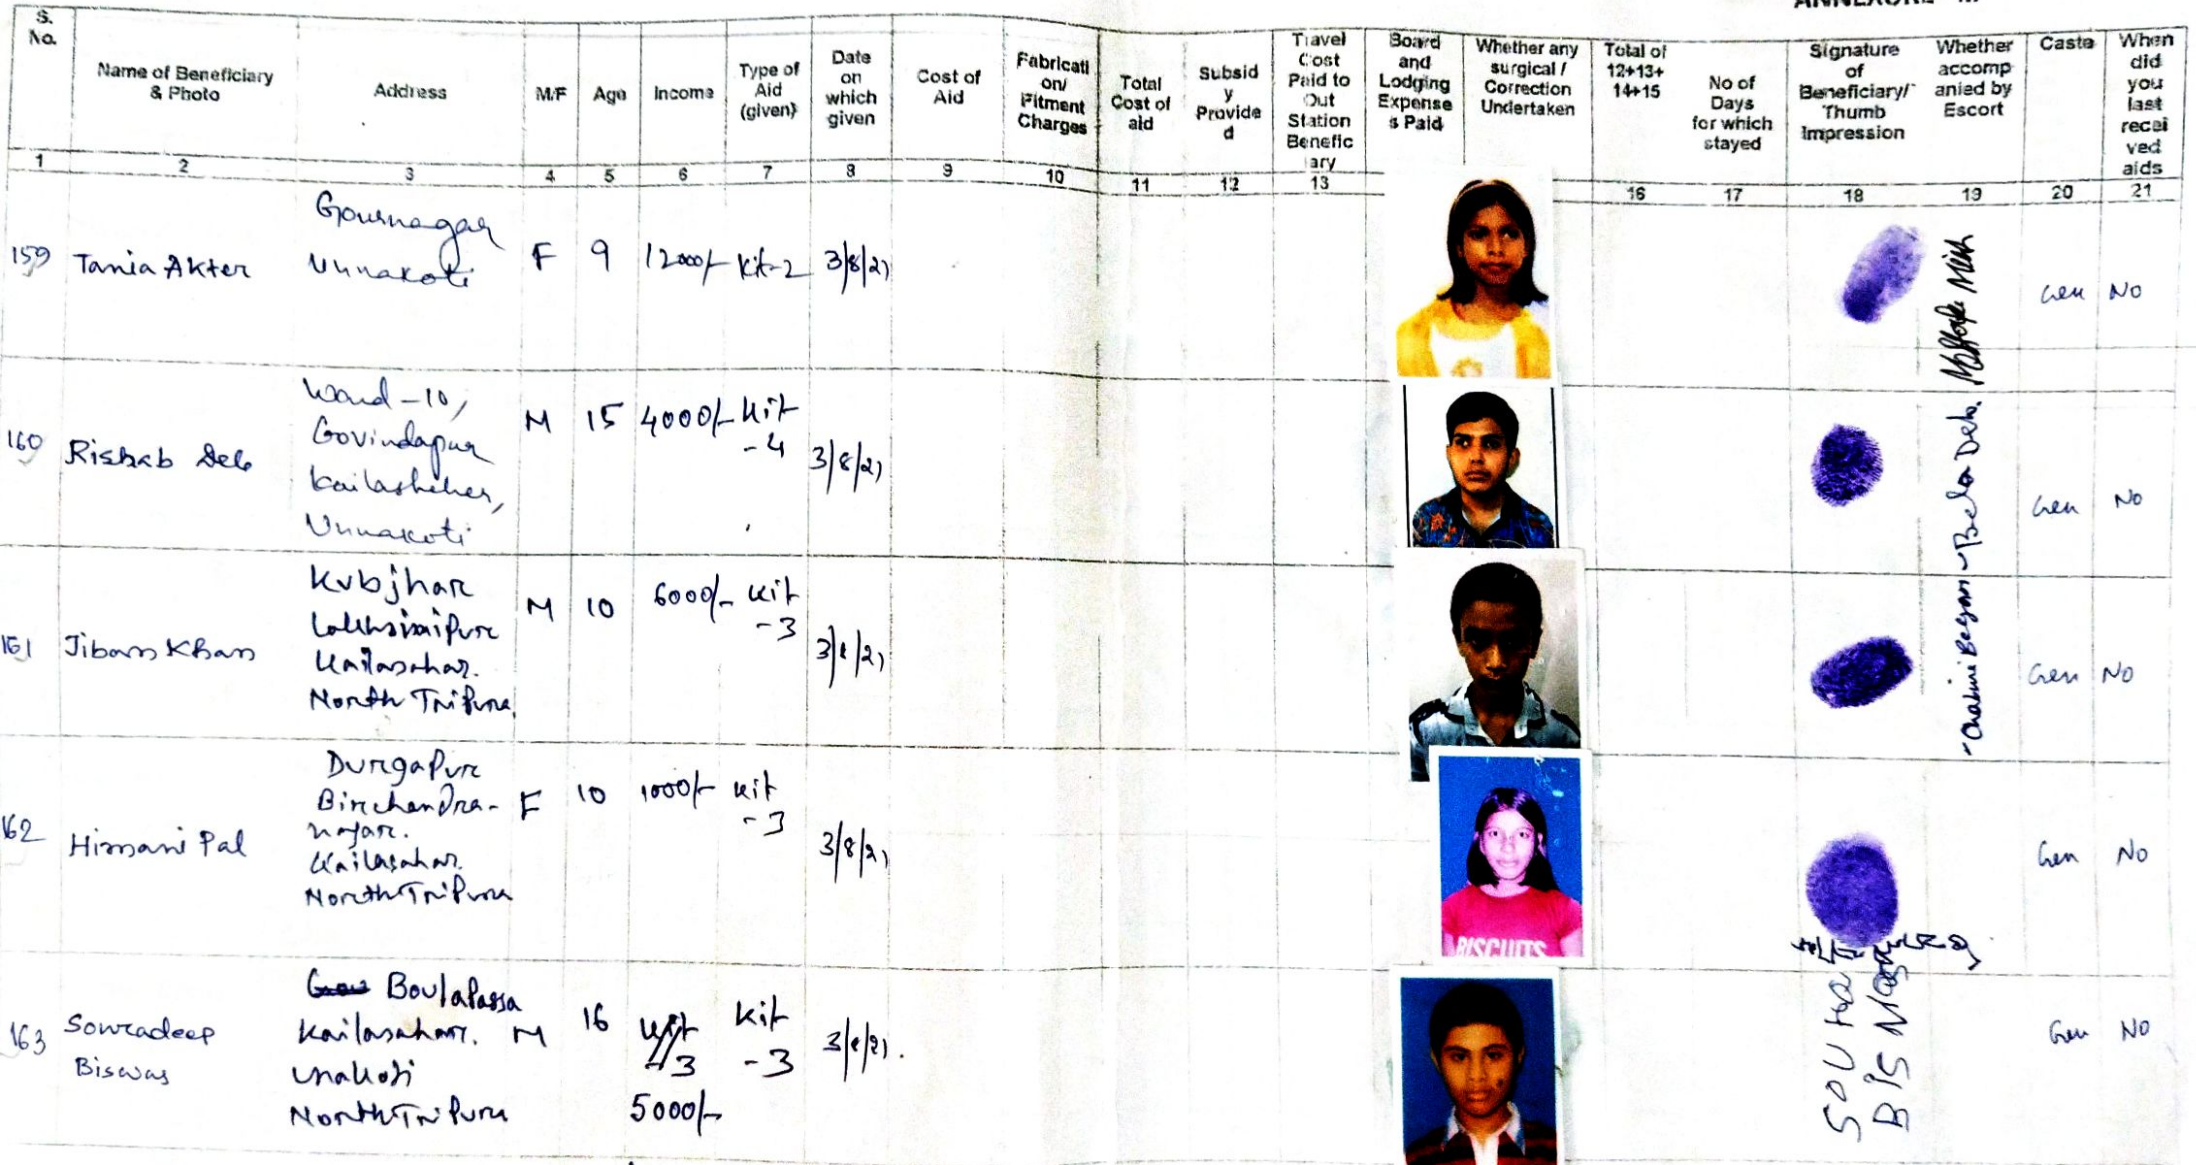 S. No.
Name of Beneficiary & Photo
Address
M/F
Age
Income
Type of Aid (given)
Date on which given
Cost of Aid
Fabricati on/ Fitment Charges
Total Cost of aid
Subsid y Provide d
Travel Cost Paid to Out Station Benefic iary
Board and Lodging Expense s Paid
Whether any surgical / Correction Undertaken
Total of 12+13+ 14+15
No of Days for which stayed
Signature of Beneficiary/ Thumb Impression
Whether accomp anied by Escort
Caste
When did you last recei ved aids
1 2 3 4 5 6 7 8 9 10 11 12 13 16 17 18 19 20 21
159 Tania Akter
Gournagar
Unnakoti
F 9 12000/- Kit-2 3/8/21
Gen No
160 Rishab Deb
Ward-10,
Govindapur
Kailashaher,
Unnakoti
M 15 4000/- Kit
-4
3/8/21
Bela Deb.
Gen No
161 Jiban Khan
Kubjhar
Lakhsimipur
Kailasahar.
North Tripura
M 10 6000/- Kit
-3
3/8/21
Begam
Gen No
162 Himani Pal
Durgapur
Birchandra-
nagar.
Kailasahar.
North Tripura
F 10 1000/- Kit
-3
3/8/21
Gen No
BISCUITS
163 Souradeep
Biswas
Boulapassa
Kailasahar.
Unakoti
North Tripura
M 16
5000/-
Kit
-3
3/8/21.
BISWAS
Gen No